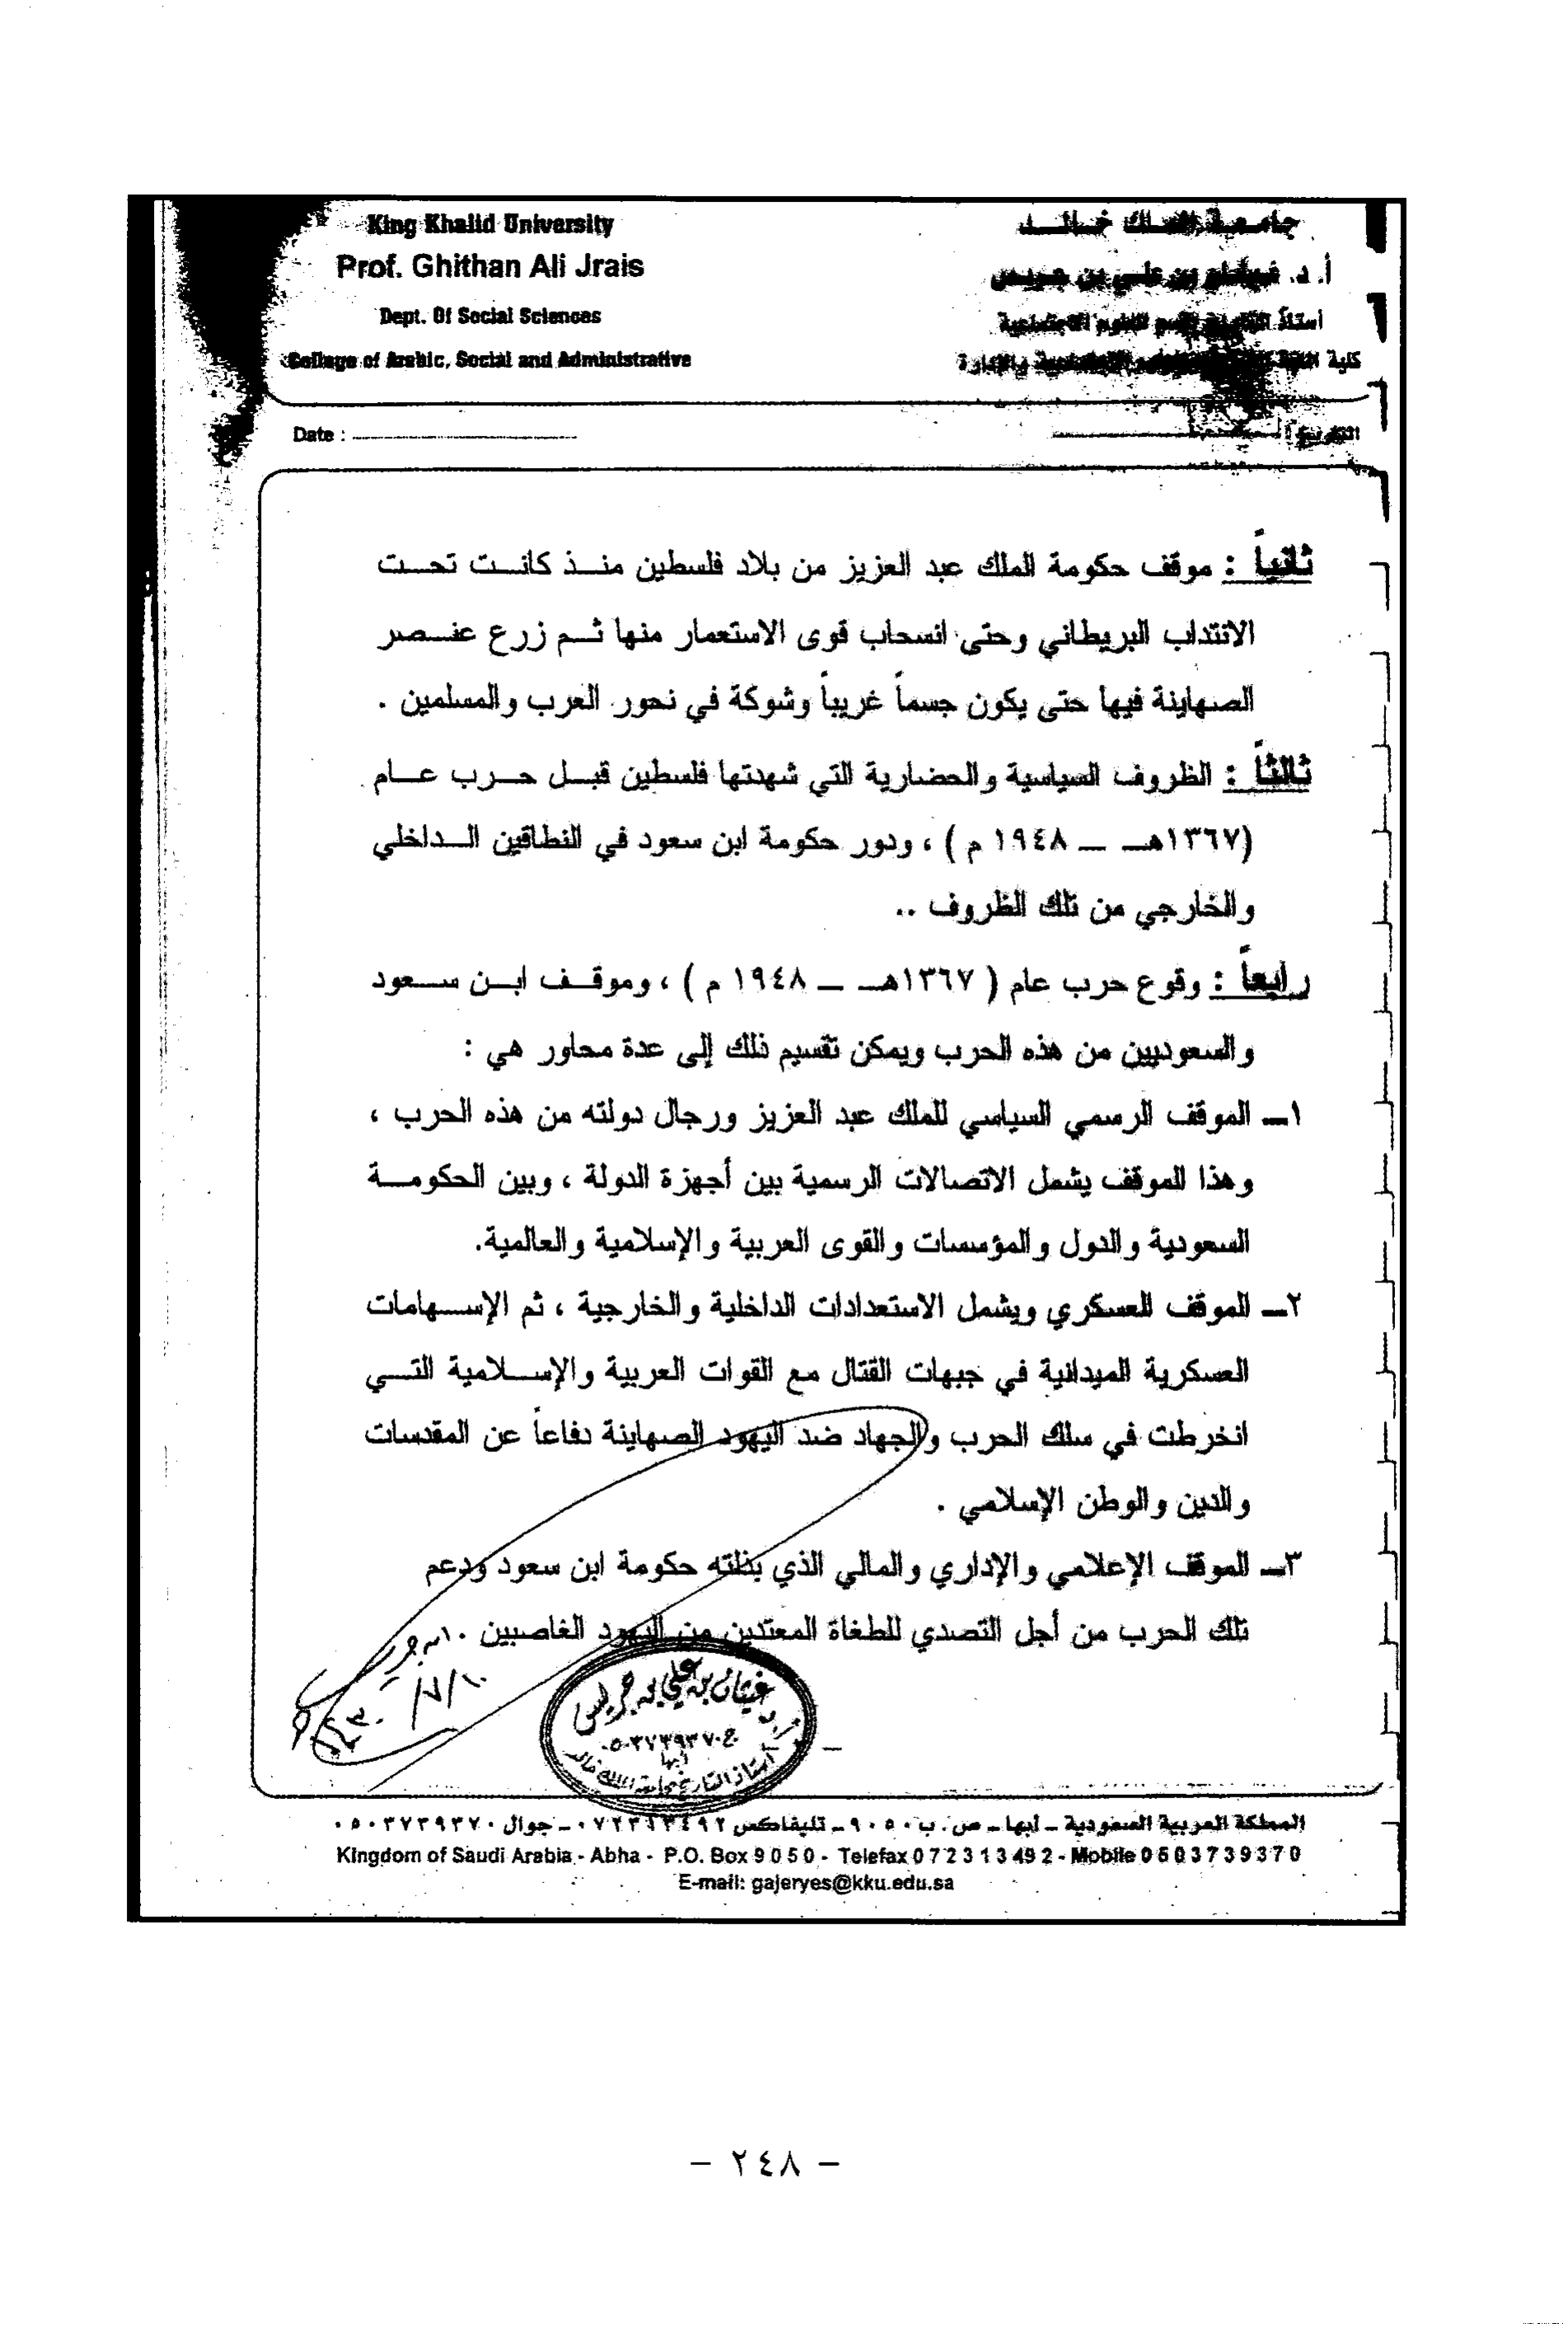 King Khalid University
جامعة الملك خالد
Prof. Ghithan Ali Jrais
أ. د. غيثان بن علي بن جريس
Dept. Of Social Sciences
أستاذ التاريخ قسم العلوم الاجتماعية
College of Arabic, Social and Administrative
كلية اللغة الاجتماعية والإدارة
Date :
التاريخ :
ثانياً : موقف حكومة الملك عبد العزيز من بلاد فلسطين منذ كانت تحت
الانتداب البريطاني وحتى انسحاب قوى الاستعمار منها ثم زرع عنصر
الصهاينة فيها حتى يكون جسماً غريباً وشوكة في نحور العرب والمسلمين .
ثالثاً : الظروف السياسية والحضارية التي شهدتها فلسطين قبل حرب عام
(١٣٦٧هـ – ١٩٤٨ م ) ، ودور حكومة ابن سعود في النطاقين الداخلي
والخارجي من تلك الظروف ..
رابعاً : وقوع حرب عام ( ١٣٦٧هـ – ١٩٤٨ م ) ، وموقف ابن سعود
والسعوديين من هذه الحرب ويمكن تقسيم ذلك إلى عدة محاور هي :
١– الموقف الرسمي السياسي للملك عبد العزيز ورجال دولته من هذه الحرب ،
وهذا الموقف يشمل الاتصالات الرسمية بين أجهزة الدولة ، وبين الحكومة
السعودية والدول والمؤسسات والقوى العربية والإسلامية والعالمية.
٢– الموقف العسكري ويشمل الاستعدادات الداخلية والخارجية ، ثم الإسهامات
العسكرية الميدانية في جبهات القتال مع القوات العربية والإسلامية التي
انخرطت في سلك الحرب والجهاد ضد اليهود الصهاينة دفاعاً عن المقدسات
والدين والوطن الإسلامي .
٣– الموقف الإعلامي والإداري والمالي الذي بذلته حكومة ابن سعود ودعم
تلك الحرب من أجل التصدي للطغاة المعتدين من اليهود الغاصبين .
غيثان بن علي بن جريس
ج ٠٥٠٣٧٣٩٣٧٠
أبها
أستاذ التاريخ بجامعة الملك خالد
المملكة العربية السعودية – أبها – ص. ب ٩٠٥٠ – تليفاكس ٠٧٢٣١٣٤٩٢ – جوال ٠٥٠٣٧٣٩٣٧٠
Kingdom of Saudi Arabia - Abha - P.O. Box 9 0 5 0 - Telefax 0 7 2 3 1 3 4 9 2 - Mobile 0 5 0 3 7 3 9 3 7 0
E-mail: gajeryes@kku.edu.sa
– ٢٤٨ –